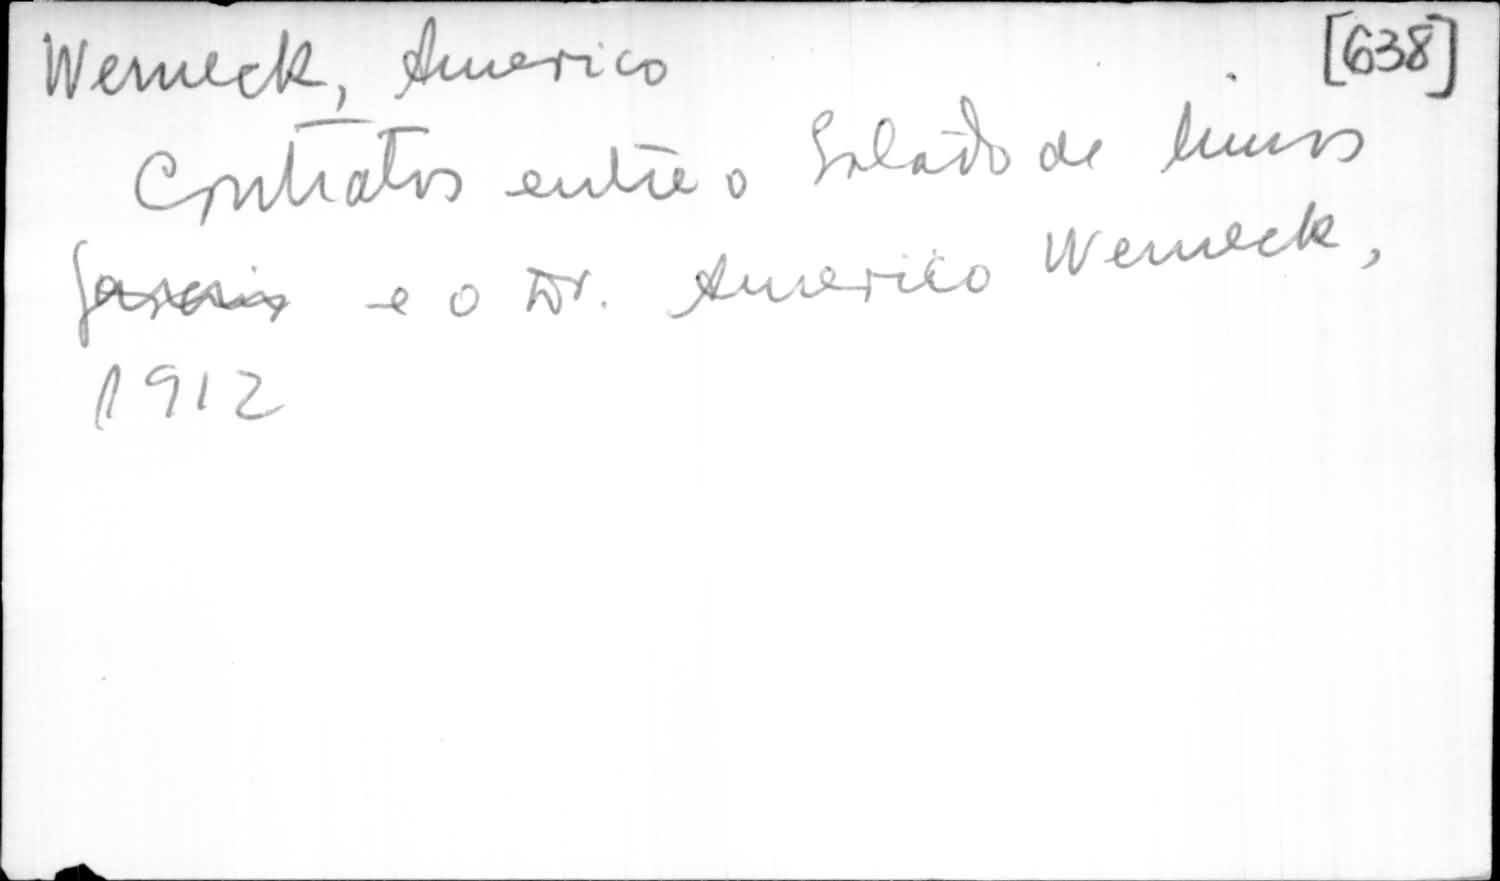 Werneck, Americo [638]
Contratos entre o Estado de Minas
Geraes e o Dr. Americo Werneck,
1912